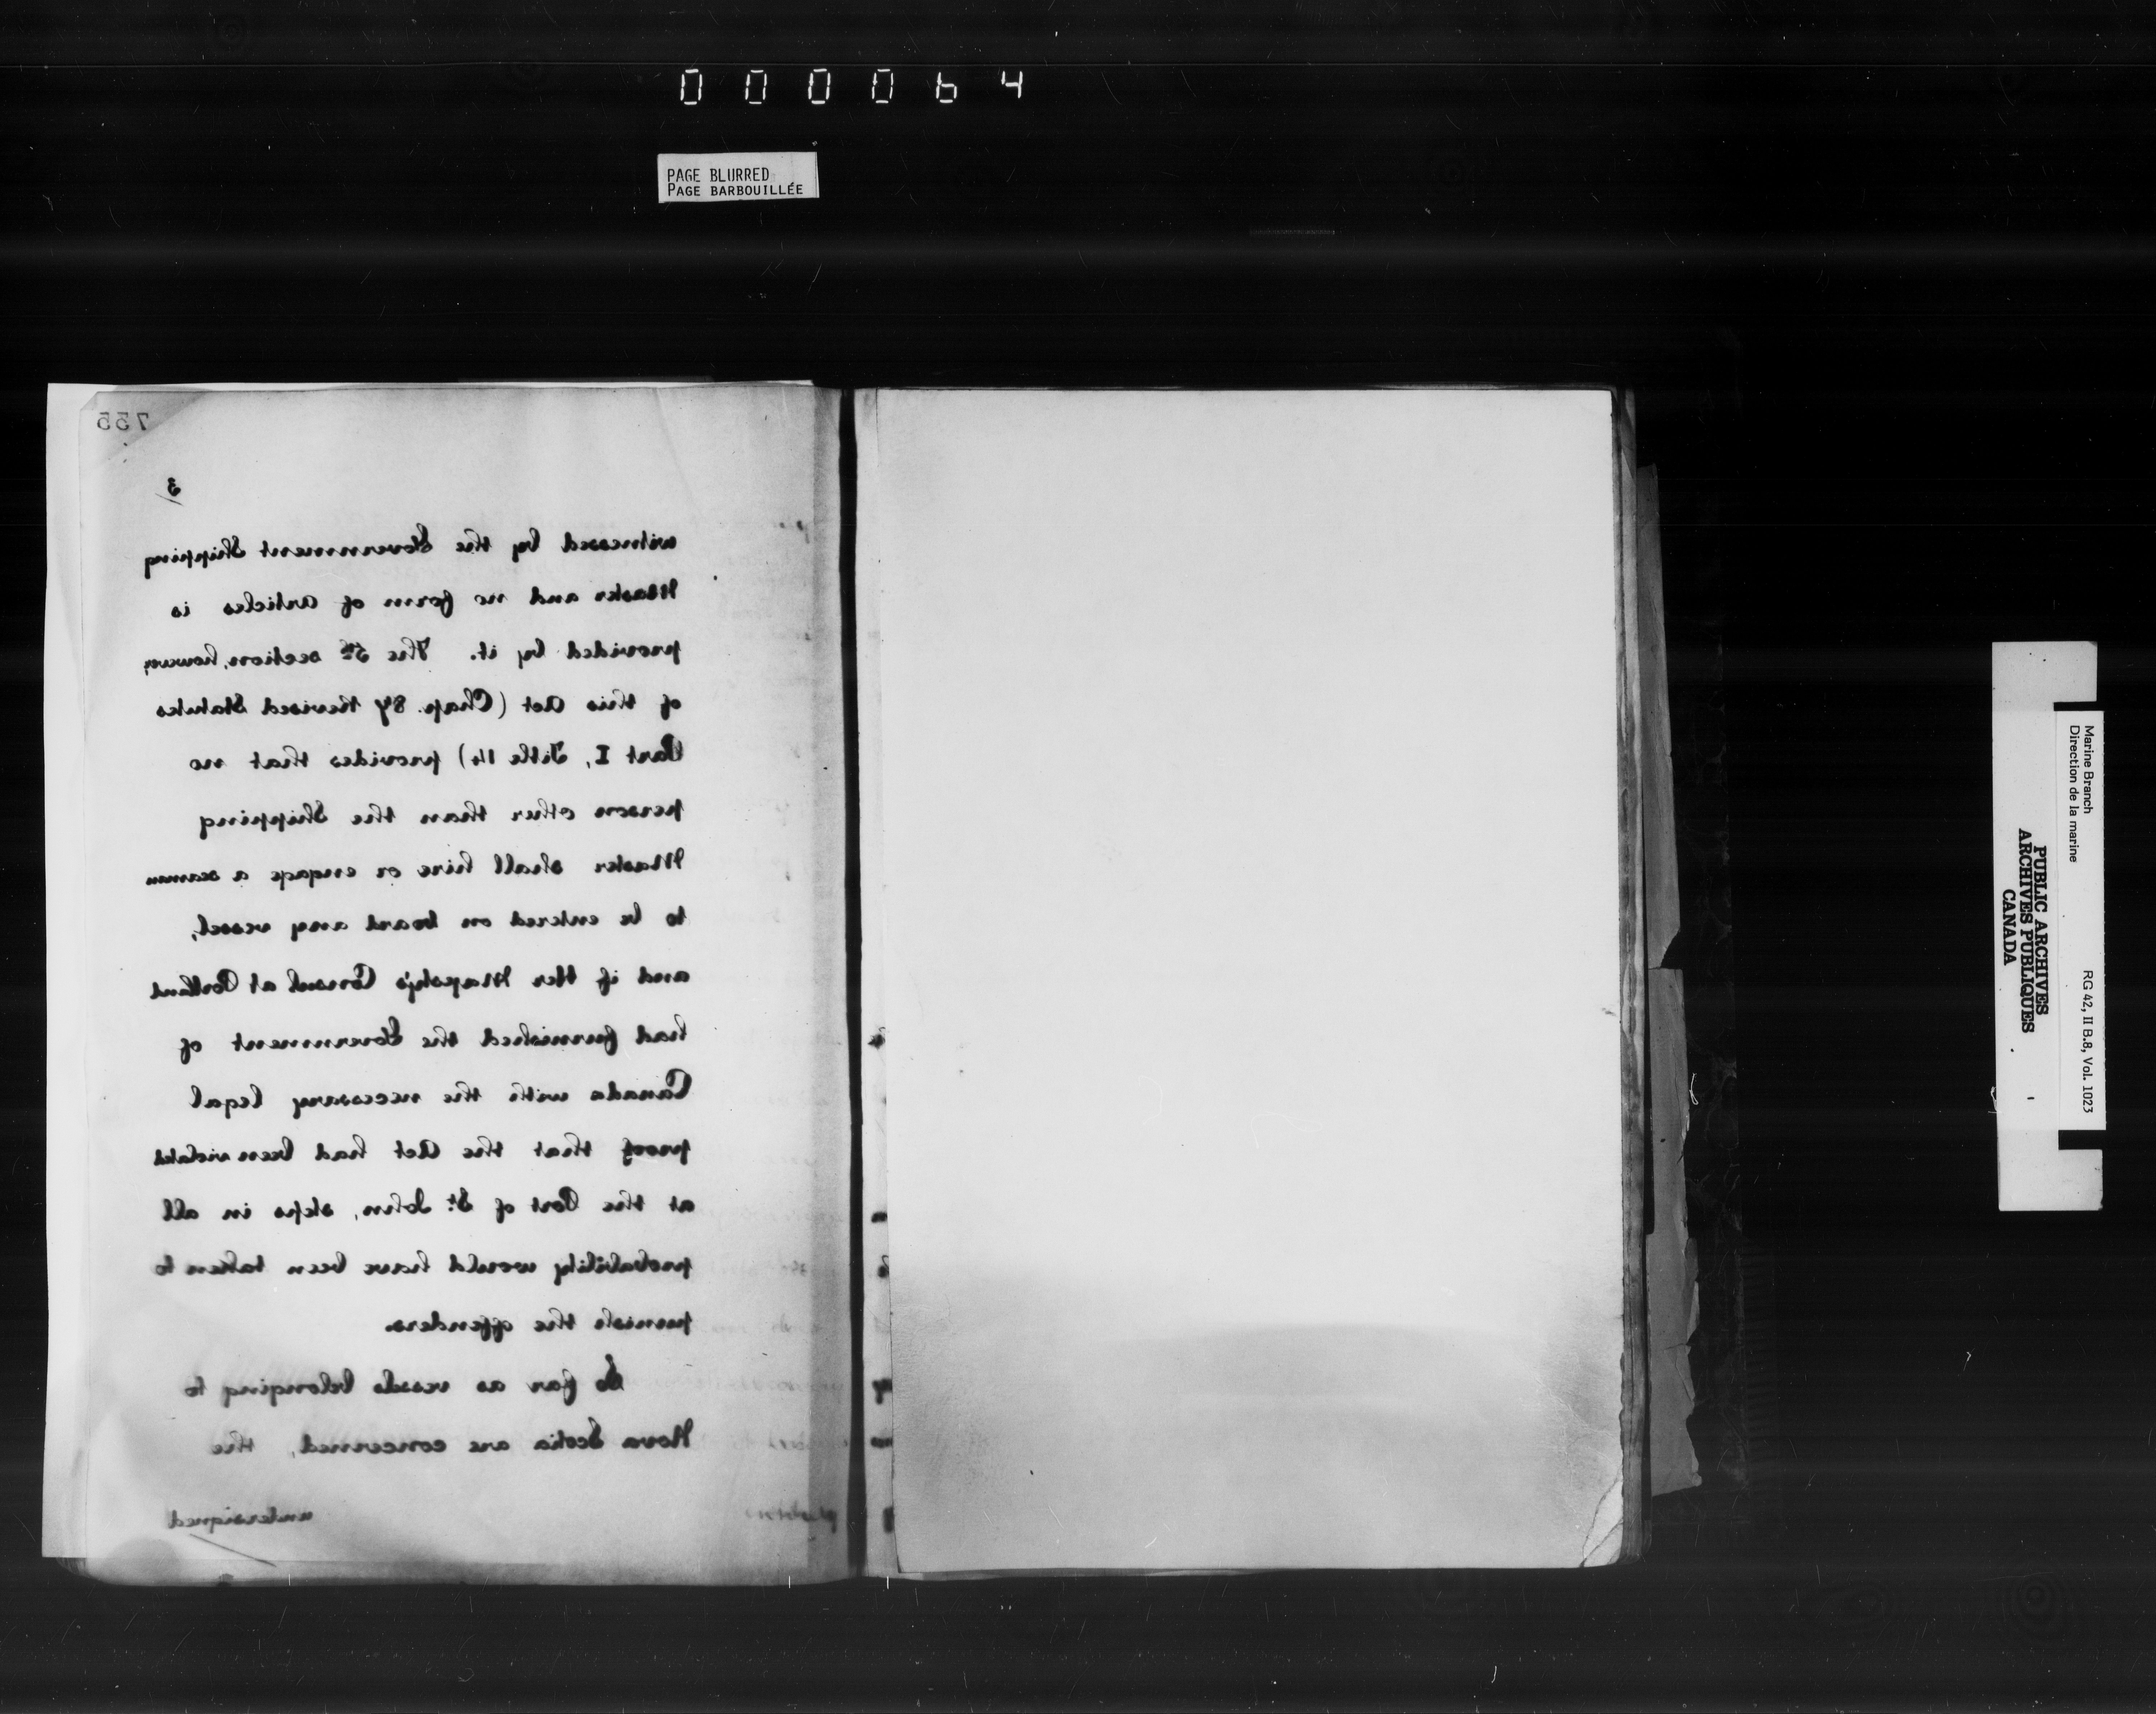 000064
PAGE BLURRED
PAGE BARBOUILLÉE
755
3
witnessed by the Government Shipping
Master and no form of articles is
provided by it. The 5th section, however,
of this Act (Chap. 87 Revised Statutes
Part I, Title 14) provides that no
person other than the Shipping
Master shall hire or engage a seaman
to be entered on board any vessel,
and if Her Majesty's Consul at Portland
had furnished the Government of
Canada with the necessary legal
proof that the Act had been violated
at the Port of St. John, steps in all
probability would have been taken to
punish the offenders.
So far as vessels belonging to
Nova Scotia are concerned, the
undersigned
Marine Branch
Direction de la marine
RG 42, II B.8, Vol. 1023
PUBLIC ARCHIVES
ARCHIVES PUBLIQUES
CANADA